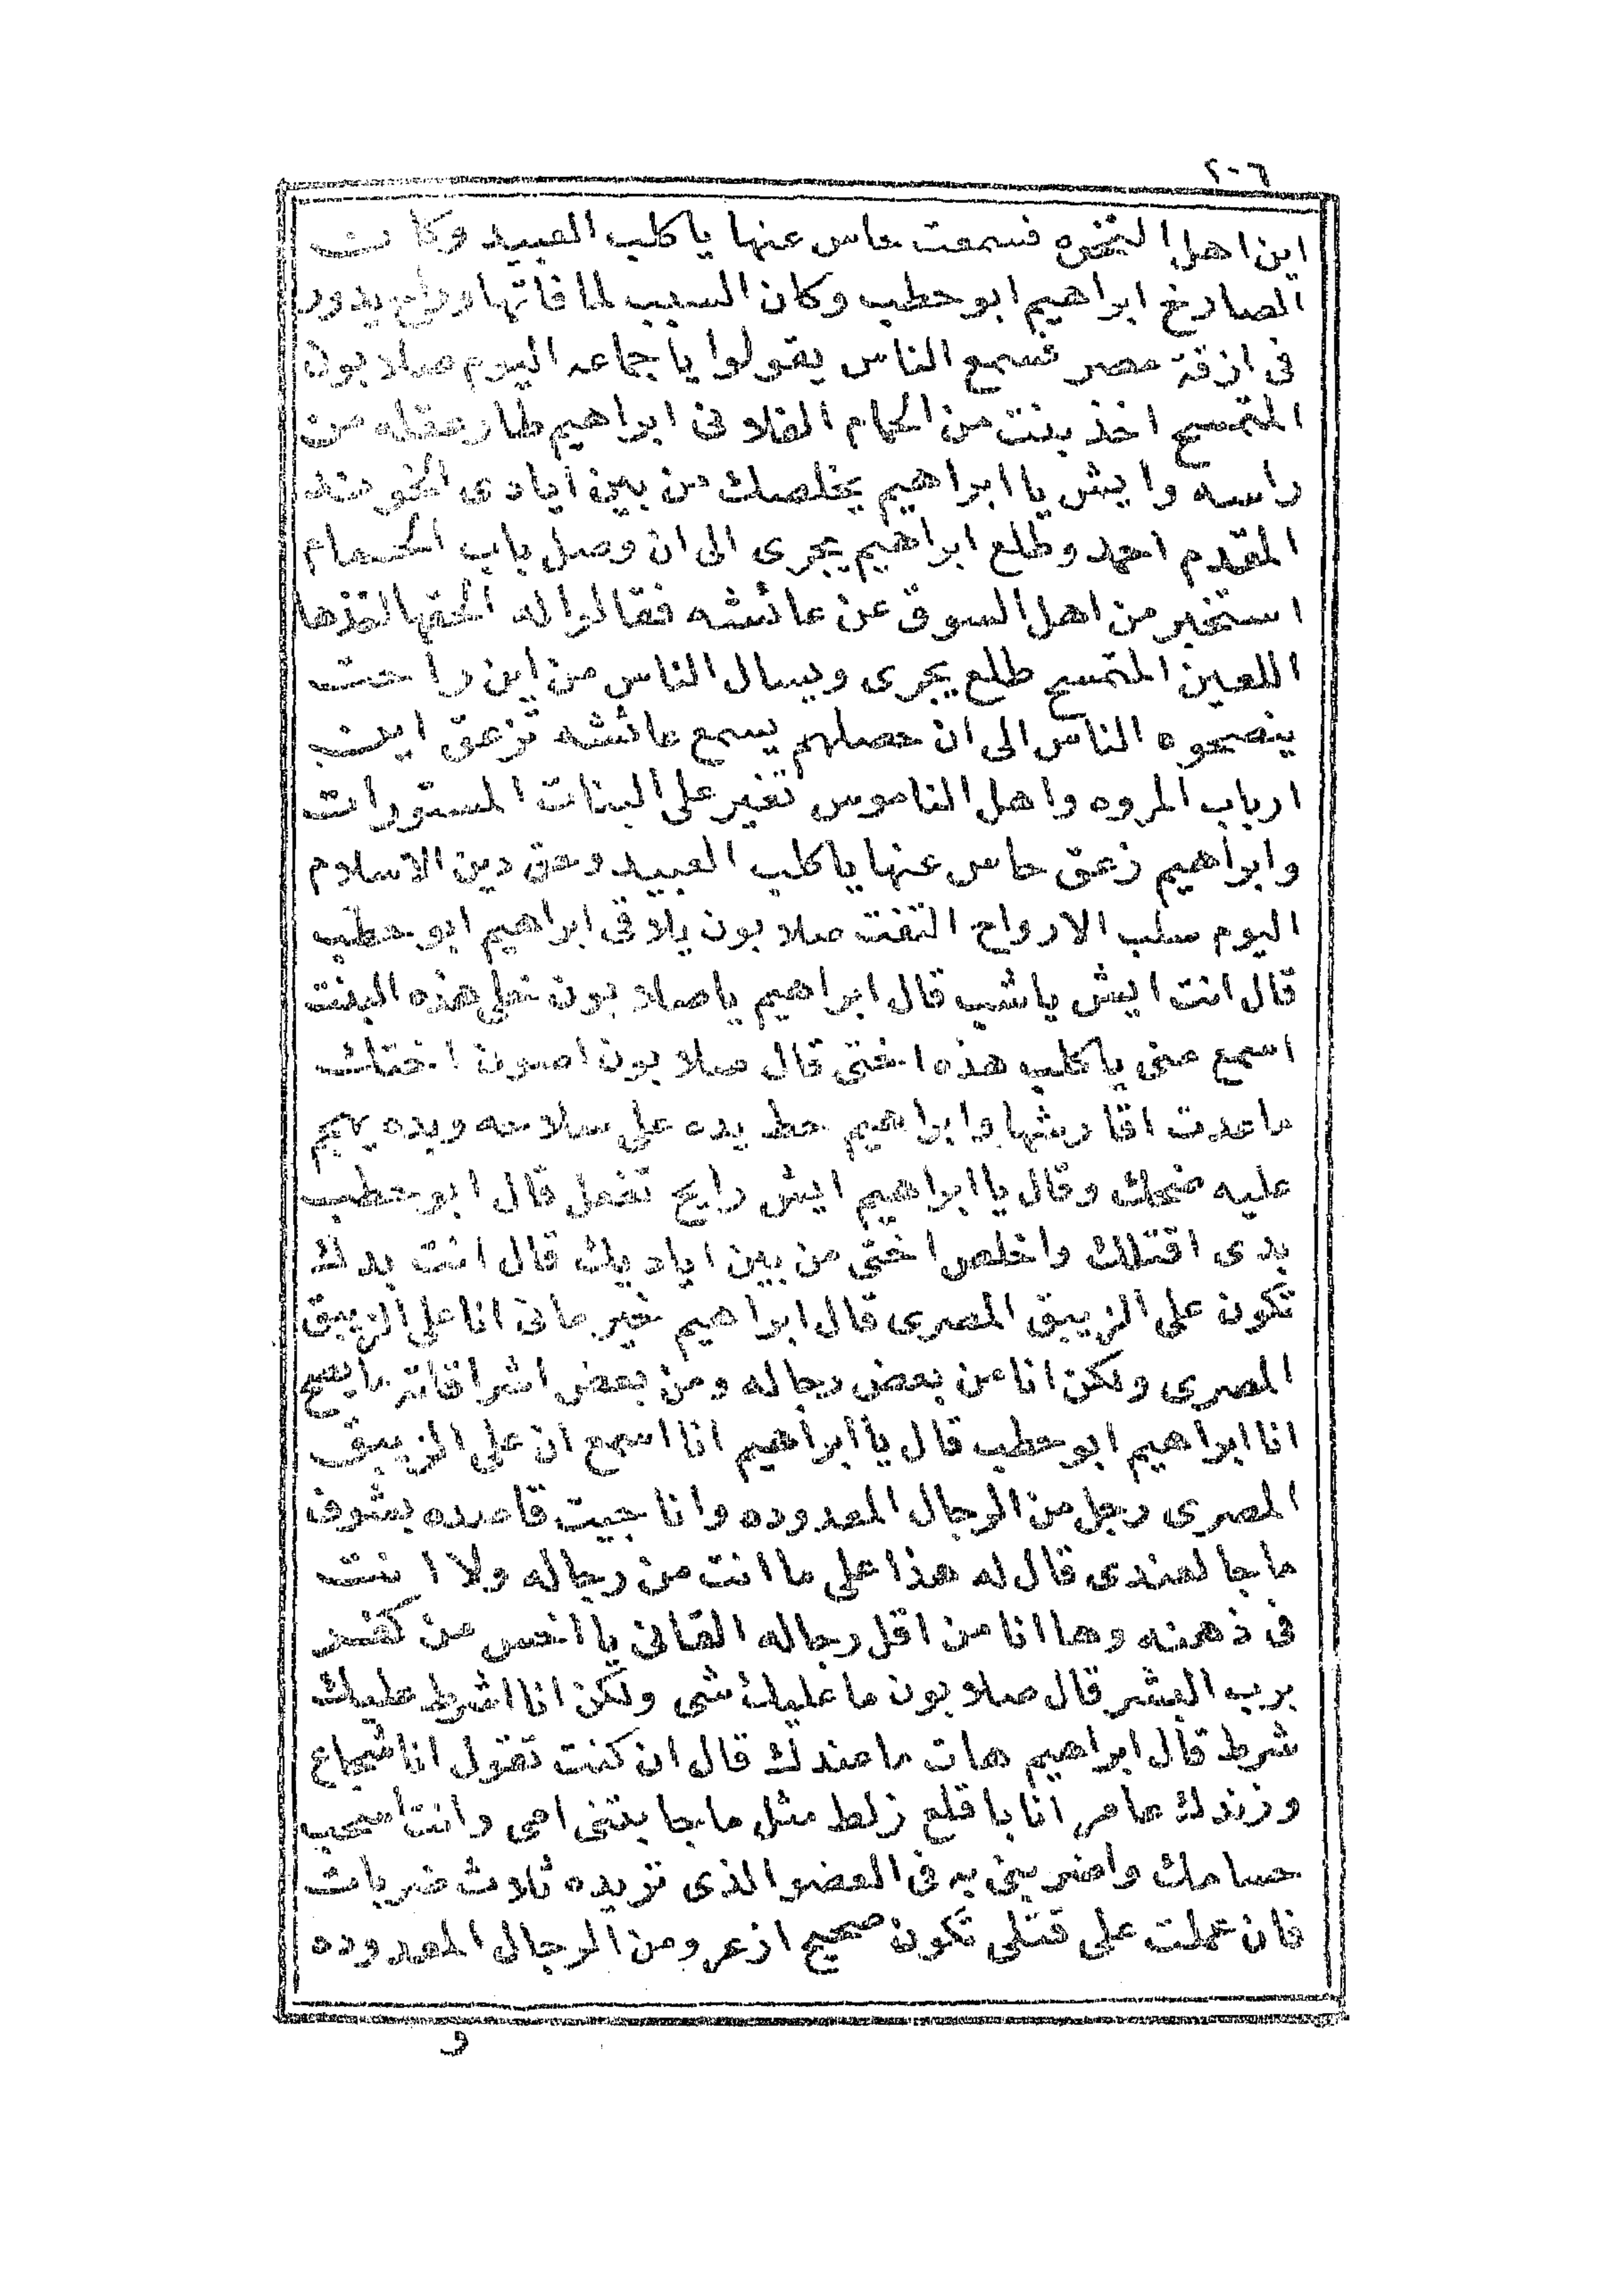 ٢٠٦
اين اهل النخوه فسمعت حاس عنها ياكلب العبيد وكانت
الصارخ ابراهيم ابو حطب وكان السبب لما فاتها وراح يدور
فى ازقة مصر فسمع الناس يقولوا يا جماعه اليوم صلابون
المتمسح اخذ بنت من الحمام الفلانى ابراهيم طار عقله من
راسه وايش يا ابراهيم يخلصك من بين ايادى الخوند
المقدم احمد وطلع ابراهيم يجرى الى ان وصل باب الحمام
استخبر من اهل السوق عن عائشه فقالوا له الحقها اخذها
اللعين المتمسح طلع يجرى ويسال الناس من اين راحت
ينصحوه الناس الى ان حصلهم يسمع عائشه تزعق اين
ارباب المروه واهل الناموس تغير على البنات المستورات
وابراهيم زعق حاس عنها ياكلب العبيد وحق دين الاسلام
اليوم سلب الارواح التفت صلابون يلاقى ابراهيم ابو حطب
قال انت ايش ياشب قال ابراهيم ياصلابون خلى هذه البنت
اسمع منى ياكلب هذه اختى قال صلابون اصون اختك
ماعدت اقارشها وابراهيم حط يده على سلاحه وبده يهجم
عليه ضحك وقال يا ابراهيم ايش رايح تفعل قال ابو حطب
بدى اقتلك واخلص اختى من بين اياديك قال انت بدك
تكون على الزيبق المصرى قال ابراهيم خير مانى انا على الزيبق
المصرى ولكن انا من بعض رجاله ومن بعض اشراقاته مايصح
انا ابراهيم ابو حطب قال يا ابراهيم انا اسمع ان على الزيبق
المصرى رجل من الرجال المعدوده وانا جيت قاصده بشوف
ماجا لعندى قال له هذا على ما انت من رجاله ولا انت
فى ذهنه وها انا من اقل رجاله القانى يا انحس من كفر
برب البشر قال صلابون ما عليك شى ولكن انا اشرط عليك
شرط قال ابراهيم هات ماعندك قال ان كنت تقول انا شجاع
وزندك عامر انا باقلع زلط مثل ماجابتنى امى وانت اسحب
حسامك واضربنى به فى العضو الذى تريده ثلاث ضربات
فان عملت على قتلى تكون صحيح ازعر ومن الرجال المعدوده
و